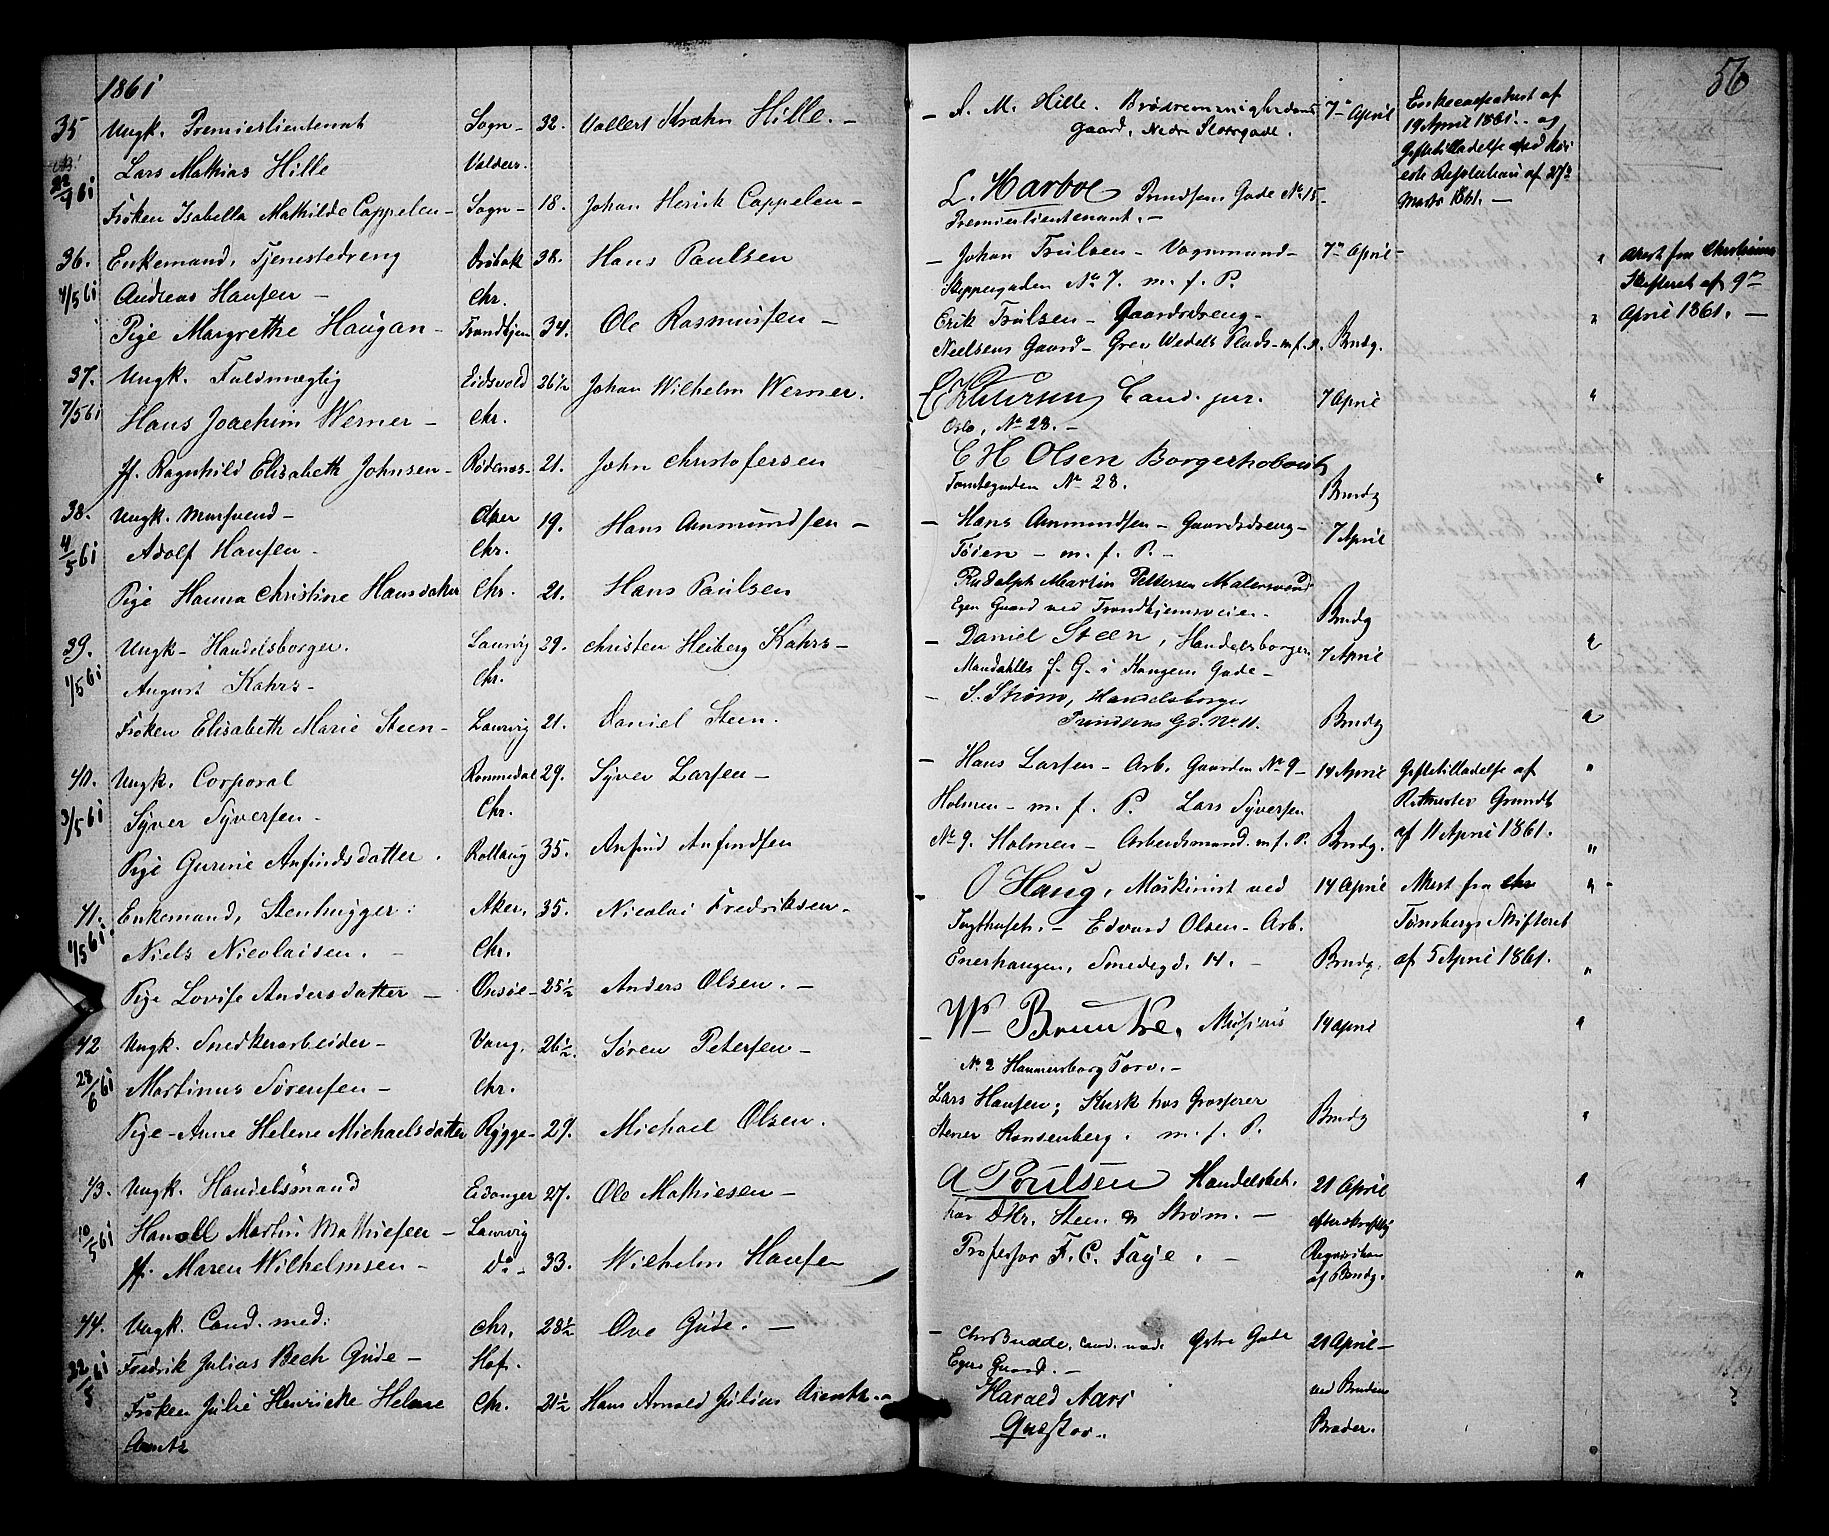 1861
35 Ungk. Premierlieutenant Sogn- 32. Vollert Krohn Hille. —
Lars Mathias Hille Valders.
22/4 61
Frøken Isabella Mathilde Cappelen — Sogn- 18. Johan Henrik Cappelen —
36. Enkemand, Tjenestedreng Drøbak 38. Hans Paulsen
4/5 61 Andreas Hansen — Chr.
Pige Margrethe Haugan — Trondhjem 34. Ole Rasmussen —
37. Ungk. Fuldmægtig Eidsvold 26 1/2 Johan Wilhelm Werner.
7/5 61 Hans Joachim Werner — Chr.
Jf. Ragnhild Elisabeth Johnsen — Rødenæs- 21. John Christofersen
38. Ungk. Mursvend — Aker 19. Hans Amundsen —
4/5 61 Adolf Hansen — Chr.
Pige Hanna Christine Hansdatter Chr. 21. Hans Paulsen
39. Ungk — Handelsborger. Laurvig 29. Christen Heiberg Kahrs —
1/5 61 August Kahrs — Chr.
Frøken Elisabeth Marie Steen — Laurvig 21. Daniel Steen.
40. Ungk. Corporal Rommedal 29. Syver Larsen —
3/5 61 Syver Syversen — Chr.
Pige Gurine Anfindsdatter. Rollaug 35. Anfind Anfindsen
41. Enkemand, Stenhugger: Aker, 35. Nicolai Fredriksen —
1/5 61. Niels Nicolaisen. — Chr.
Pige Lovise Andersdatter — Onsøe — 25 1/2 Anders Olsen. —
42 Ungk. Snedkerarbeider — Vang. 26 1/2 Søren Petersen —
28/6 61 Martinus Sørensen — Chr.
Pige — Anne Helene Michaelsdatter Rygge — 29. Michael Olsen.
43. Ungk. Handelsmand Eidanger 27. Ole Mathiesen —
10/5 61 Martin Mathiesen — Laurvig
Jf. Maren Wilhelmsen — Do — 33. Wilhelm Hansen
44. Ungk. Cand. med: Chr. 28 1/2 Ove Gude. —
Fredrik Julius Bech Gude — Hof.
Frøken Julie Henricke Helene Chr. 21 1/2 Hans Arnold Julius Arentz. —
Arentz
56
— L. M. Hille. Gaard, Nedre Storgade. 7de April
Enkecasseattest af
19 April 1861. og
Giftetilladelse ved
Resolution af 27de
Marts 1861. —
L. Harboe Prindsens Gade No 15 —
Premierlieutenant. —
— Johan Trulsen — Vognmand — 7de April —
Skippergaden No 7. m. f. P.
Attest fra Christiania
Skifteret af 9de
April 1861. —
Erik Trulsen — Gaardsdreng —
Nielsens Gaard — Grev Wedels Plads — m. f. P. Brudg.
Petersen Cand. jur. 7 April
Oslo, No 28. —
C H Olsen Borgerrobout
Tomtegaden No 28. Brudg
— Hans Amundsen — Gaardsdreng — 7 April
Tøien — m. f. P. —
Rudolph Martin Pettersen Malersvend
Egen Gaard ved Trondhjemsveien — Brudg
— Daniel Steen, Handelsborger 7 April
f. G. i Kongens Gade —
— S. Strøm, Handelsborger
Prindsens Gd. No 11. Brudg
— Hans Larsen — Arb. Gaarden No 9 — 14 April Giftetilladelse af
Holmen — m. f. P. Lars Syversen Ritmester Grundt
No 9. Holmen — Arbeidsmand. m. f. P. Brudg. af 11 April 1861.
O Haug, Maskinist ved 14 April Attest fra
— Edvard Olsen — Arb. Tønsbergs Skifteret
Enerhaugen, Smedegd. 14. — Brudg. af 5 April 1861.
— Musicus 14 April
No 2 Hammersborg Torv. —
Lars Hansen; Kusk hos Grosserer Brudg
Stener Ronsenberg. m. f. P.
A Poulsen Handelsbet. 21 April
hos Steen & Strøm. — efter skriftlig
Professor F. C. Faye. — Requisition
af Brudg.
— Budde, cand. med. Gade 21 April —
Egen Gaard. —
Harald Aars ved Brudens
Quæstor. Broder.